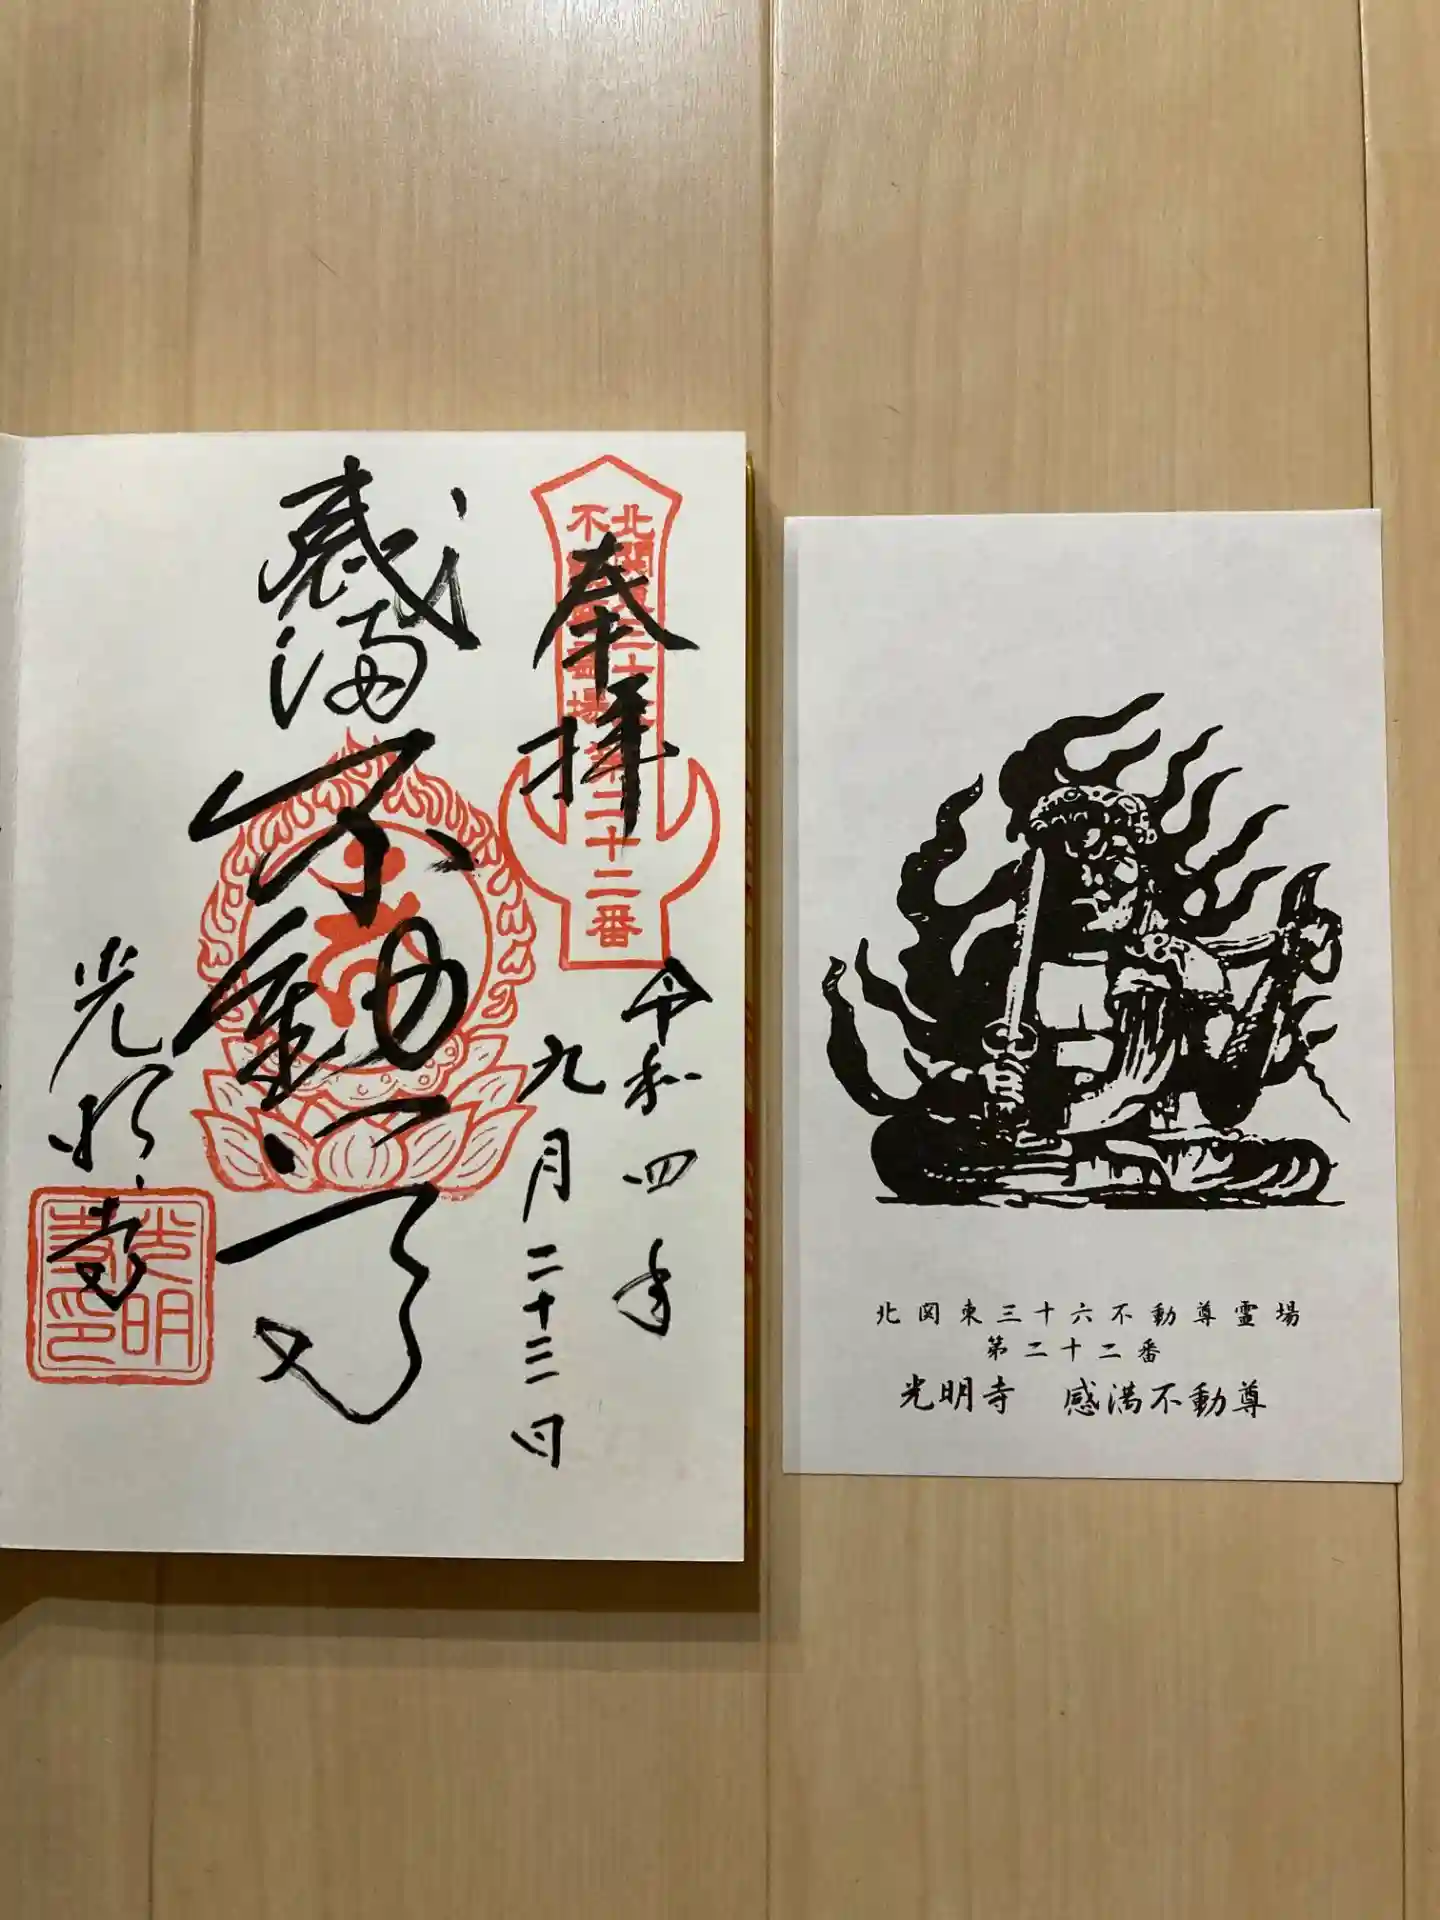 奉拝
北関東三十六
不動霊場第二十二番
令和四年
九月二十三日
感満
不動明王
光明寺
光明
寺印
北関東三十六不動尊霊場
第二十二番
光明寺 感満不動尊